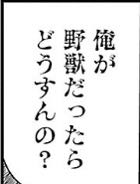 俺が
野獣だったら
どうすんの？